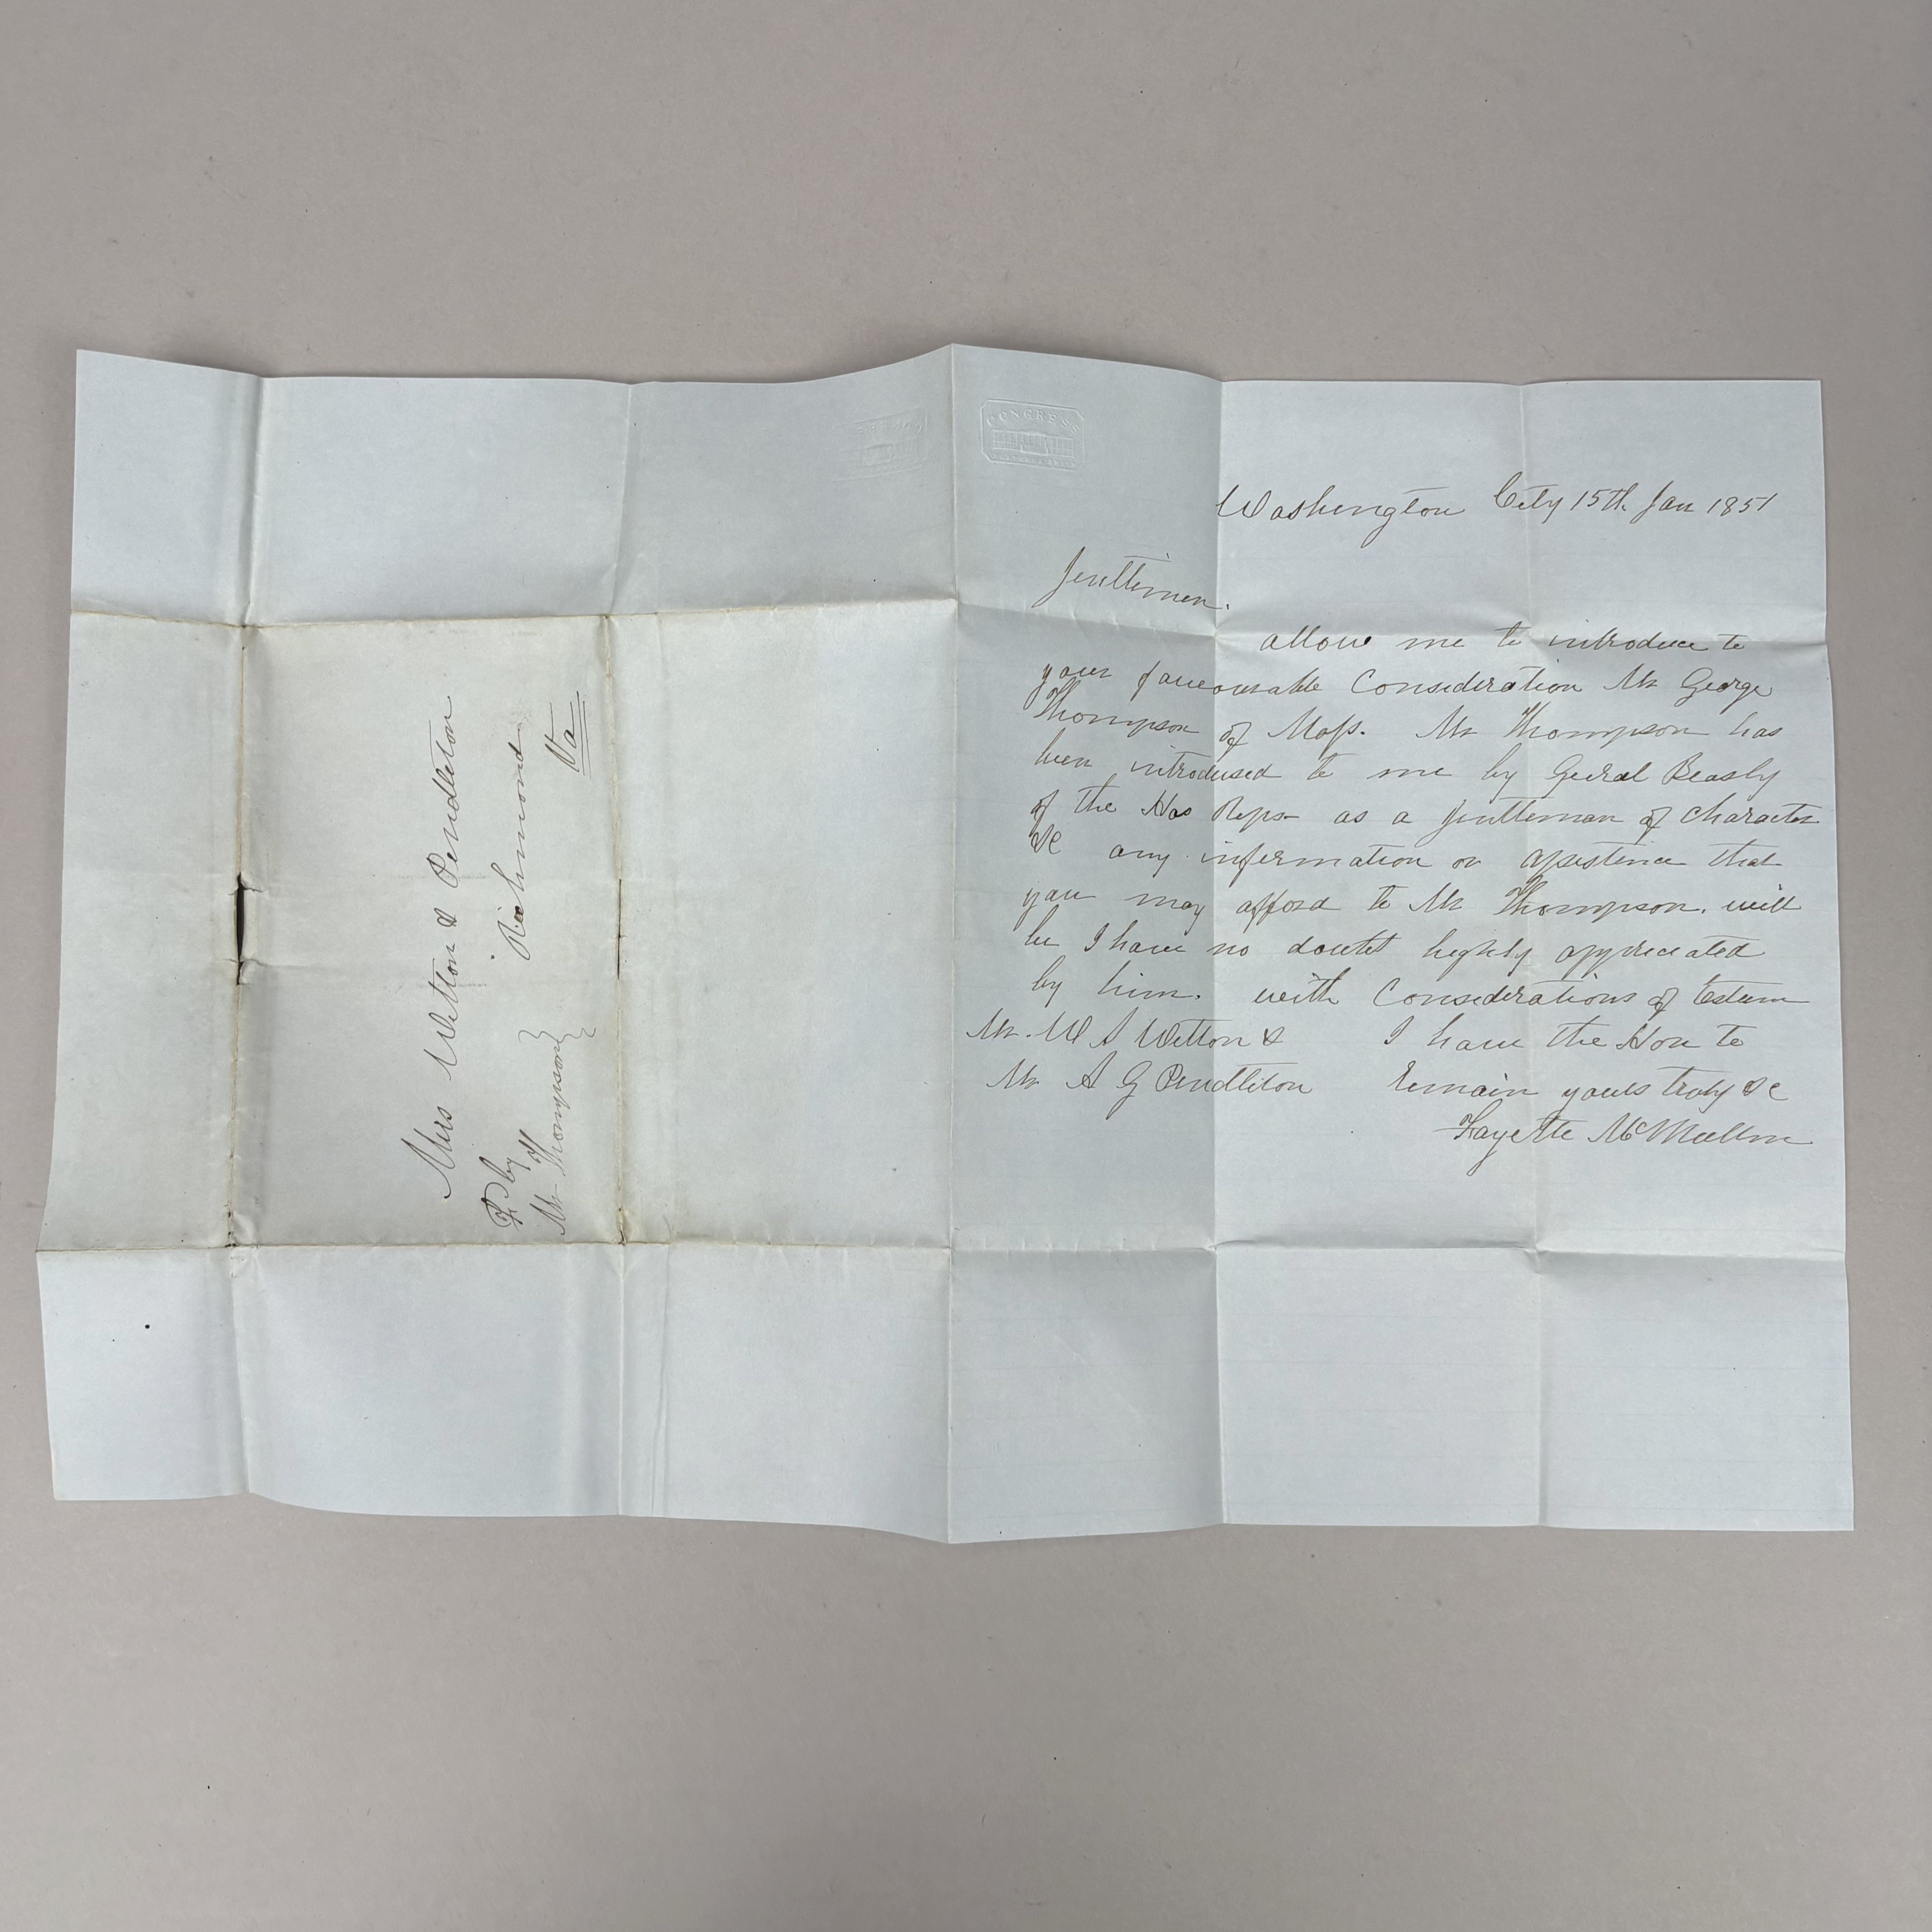 Mrs Witton & Pendleton
Richmond
Va
by
Mr Thompson
CONGRESS
Washington City 15th Jan 1851
Jenttimen.
allow me to introduce to
your favourable Consideration Mr George
Thompson of Mass. Mr Thompson has
been introdused to me by Beasly
of the Hos Reps as a Jenttiman of Character
&c any information or assistince that
you may afford to Mr Thompson. will
be I have no doubt highly appreciated
by him. with Considerations of Esteem
Mr. W A Witton &
Mr A G Pendleton
I have the Hon to
remain yours truly &c
Fayette McMullin